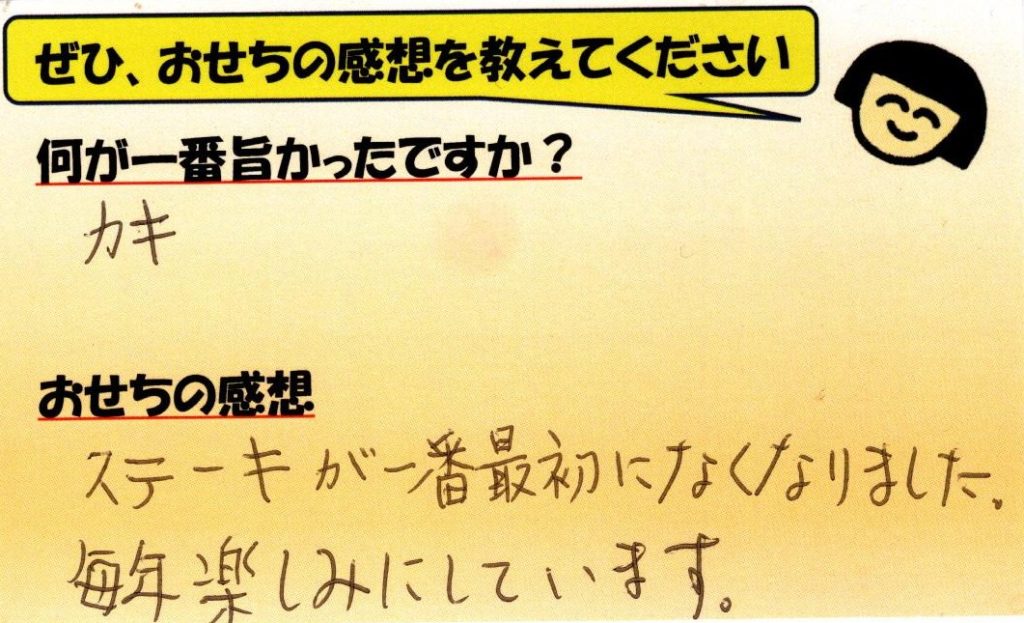 ぜひ、おせちの感想を教えてください
何が一番旨かったですか？
カキ
おせちの感想
ステーキが一番最初になくなりました。
毎年楽しみにしています。